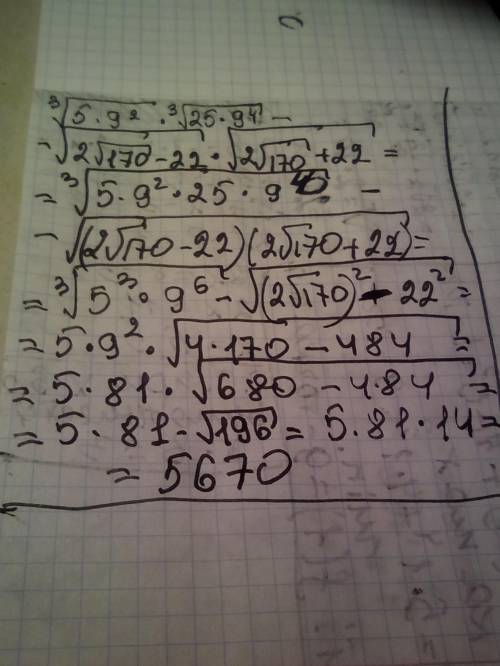 ∛(5·9²) · ∛(25·9⁴) −
− √(2√170 − 22) · √(2√170 + 22) =
= ∛(5·9²·25·9) −
− √((2√170 − 22)(2√170 + 22)) =
= ∛(5³·9⁶) − √((2√170)² − 22²) =
= 5·9² · √(4·170 − 484) =
= 5·81 · √(680 − 484) =
= 5·81 - √196 = 5·81·14 =
= 5670